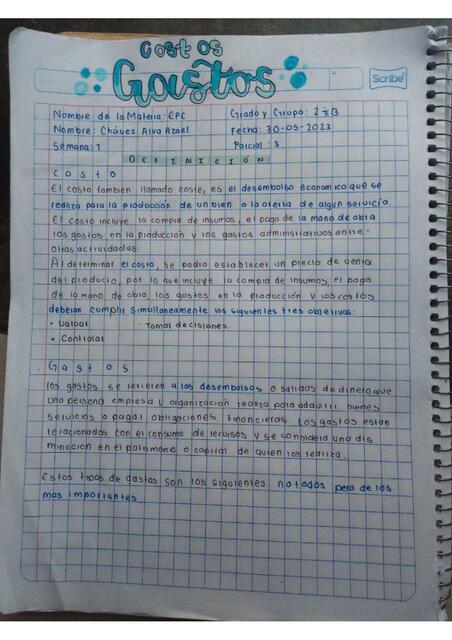 Costos
Gastos
Scribe
Nombre de la Materia: EPC Grado y Grupo: 2 B
Nombre: Chávez Alva Azael Fecha: 30-05-2023
Semana: 1 Parcial: 3
DEFINICIÓN
Costo
El costo tambien llamado coste, es el desembolso economico que se
realiza para la producción de un bien o la oferta de algún servicio.
El costo incluye la compra de insumos, el pago de la mano de obra
los gastos en la producción y los gastos administrativos entre
otras actividades.
Al determinar el costo, se podria establecer un precio de venta
del producto, por lo que incluye la compra de insumos, el pago
de la mano de obra, los gastos en la producción y los costos
deberan cumplir simultaneamente los siguientes tres objetivos:
· Valuar · Tomar decisiones.
· Controlar
Gastos
los gastos se refieren a los desembolsos o salidas de dinero que
una persona empresa u organización realiza para adquirir bienes
servicios o pagar obligaciones financieras. Los gastos estan
relacionados con el consumo de recursos y se considera una dis
minucion en el patrimonio o capital de quien los realiza.
Estos tipos de gastos son los siguientes no todos pero de los
mas importantes